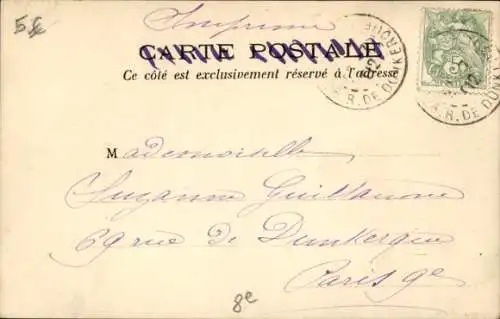 5 €
Imprimé
CARTE POSTALE
Ce côté est exclusivement réservé à l'adresse
R. DE DUNKERQUE
5
R. DE DUNK
Mademoiselle
Suzanne Guillaume
69 rue de Dunkerque
Paris 9e
8e